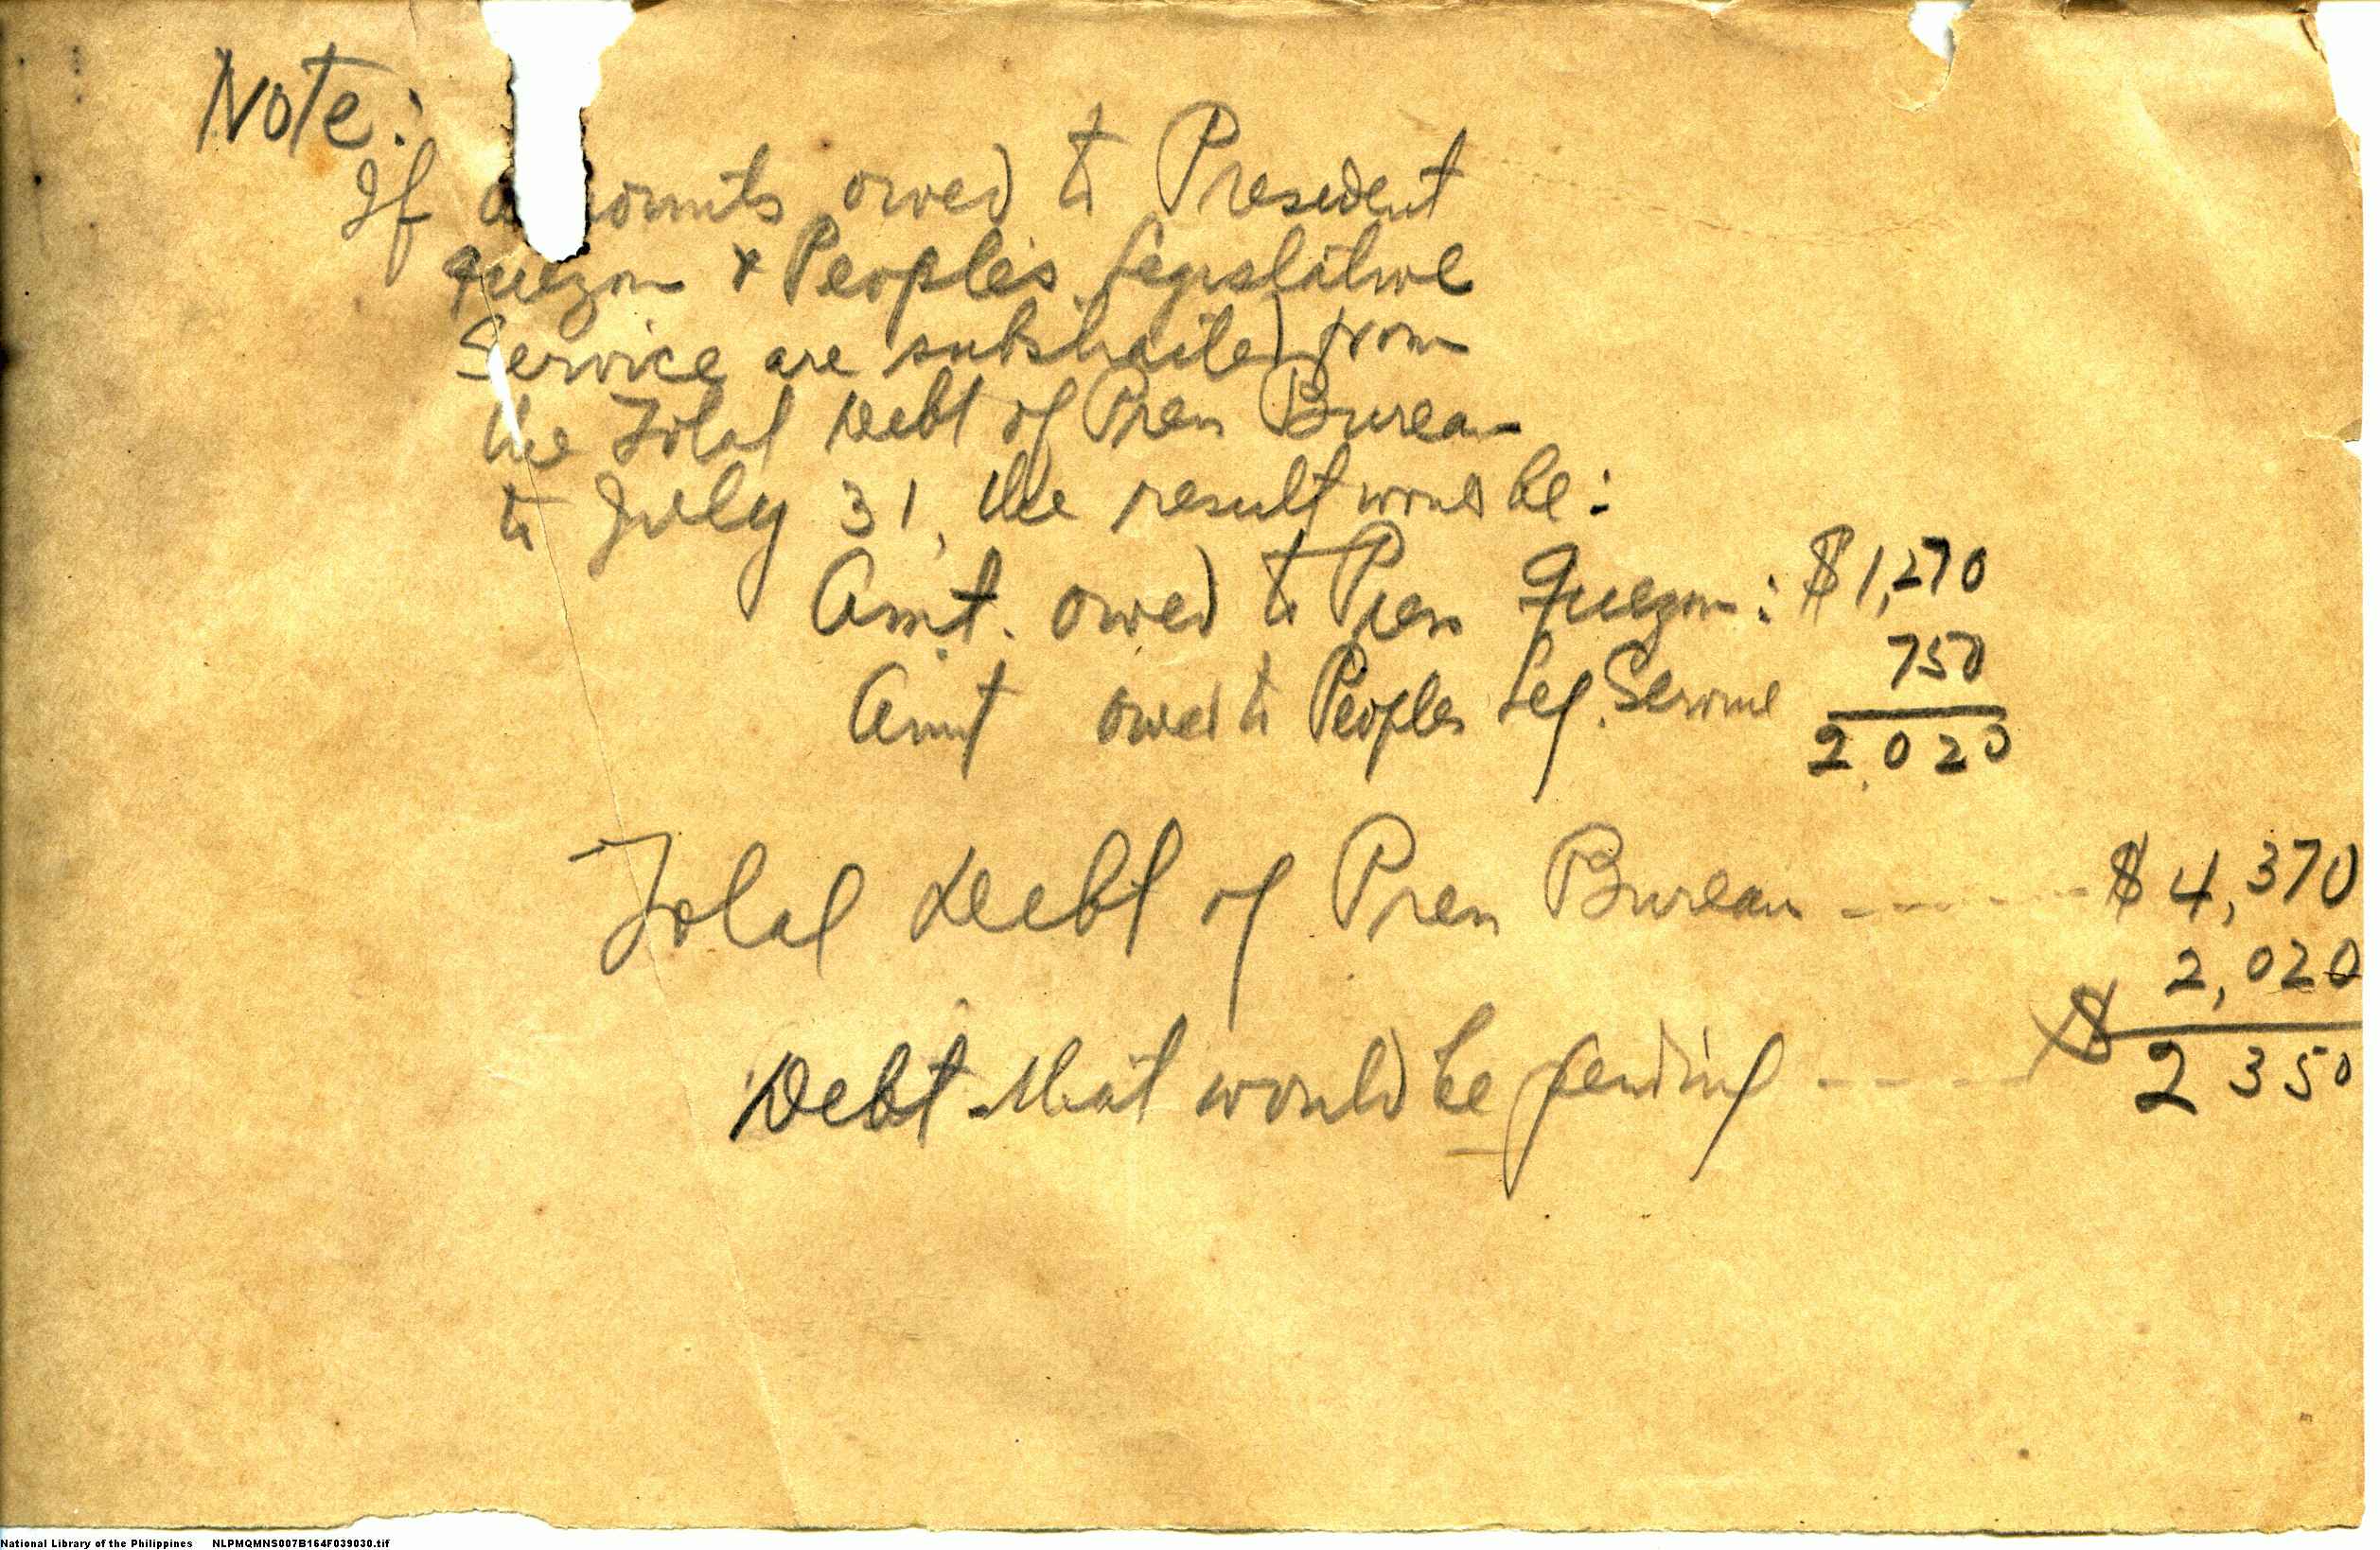 Note:
If amounts owed to President
Quezon & People's Legislative
Service are substracted from
the Total Debt of Press Bureau
to July 31, the result would be:
Amt. owed to Pres Quezon: $1,270
Amt owed to Peoples Leg. Service 750
2,020
Total debt of Press Bureau ------ $4,370
2,020
Debt that would be pending ----- $ 2 350
National Library of the Philippines NLPMQMNS007B164F039030.tif